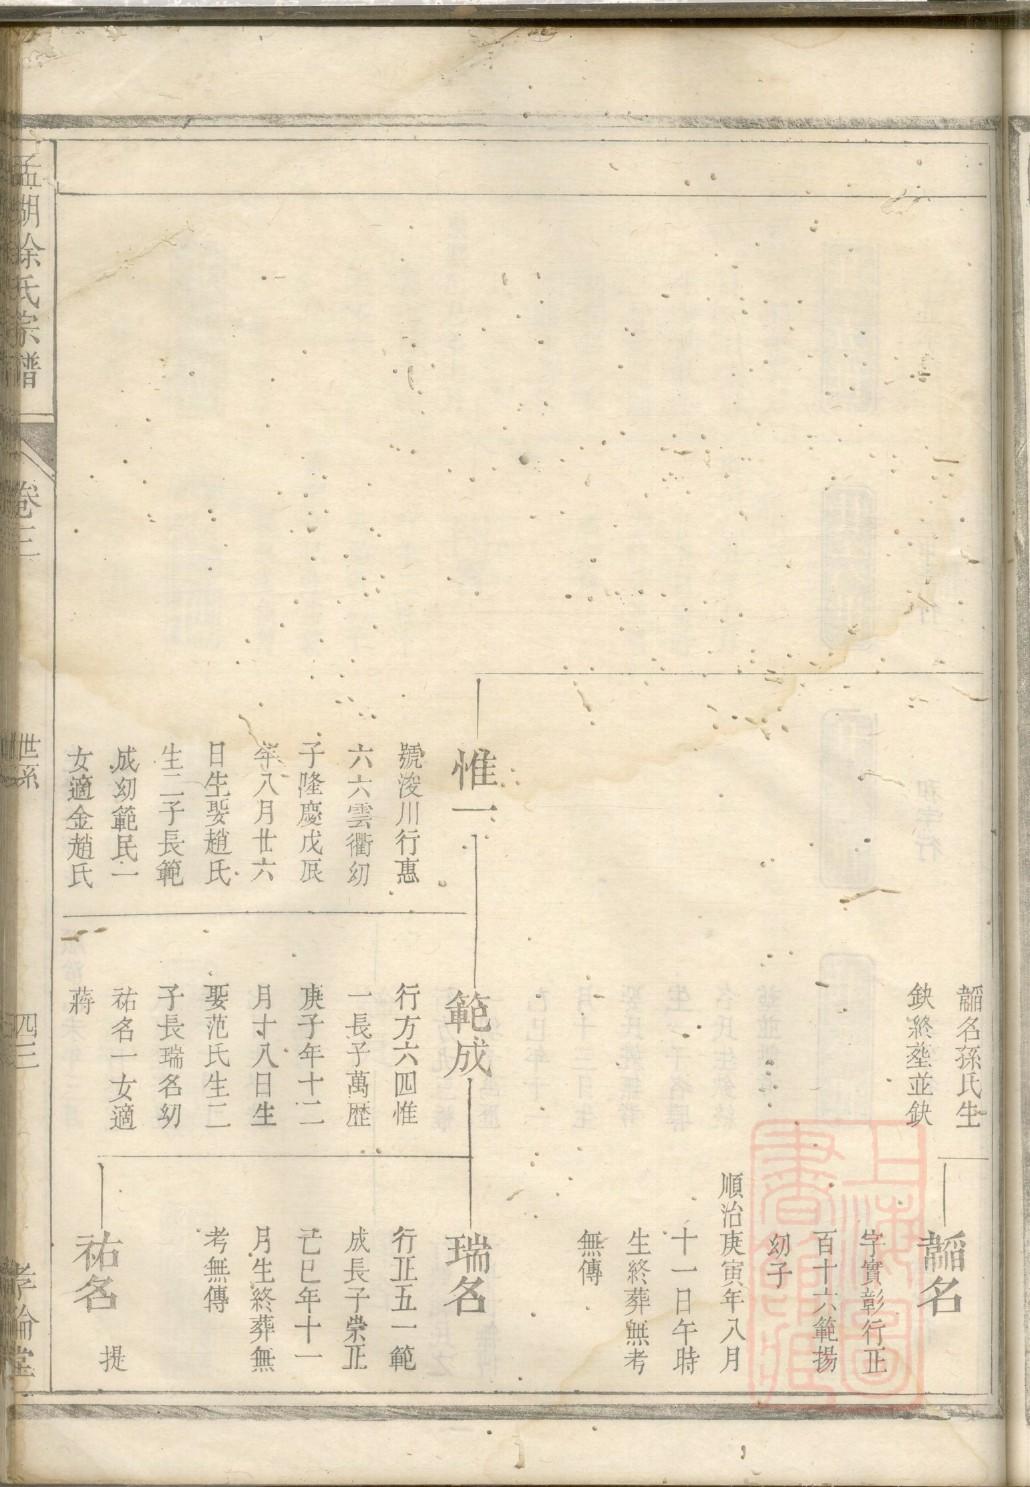 韜名孫氏生
缺終塟並缺
韜名
字實彰行正
百十六範揚
幼子
順治庚寅年八月
十一日午時
生終葬無考
無傳
惟一
號浚川行惠
六六雲衢幼
子隆慶戊辰
年八月廿六
日生娶趙氏
生二子長範
成幼範民一
女適金趙氏
範成
行方六四惟
一長子萬歷
庚子年十二
月十八日生
娶范氏生二
子長瑞名幼
祐名一女適
蔣
瑞名
行正五一範
成長子崇正
己巳年十一
月生終葬無
考無傳
祐名
提
孟湖徐氏宗譜
卷三
世系
四三
孝倫堂
上海圖書館藏